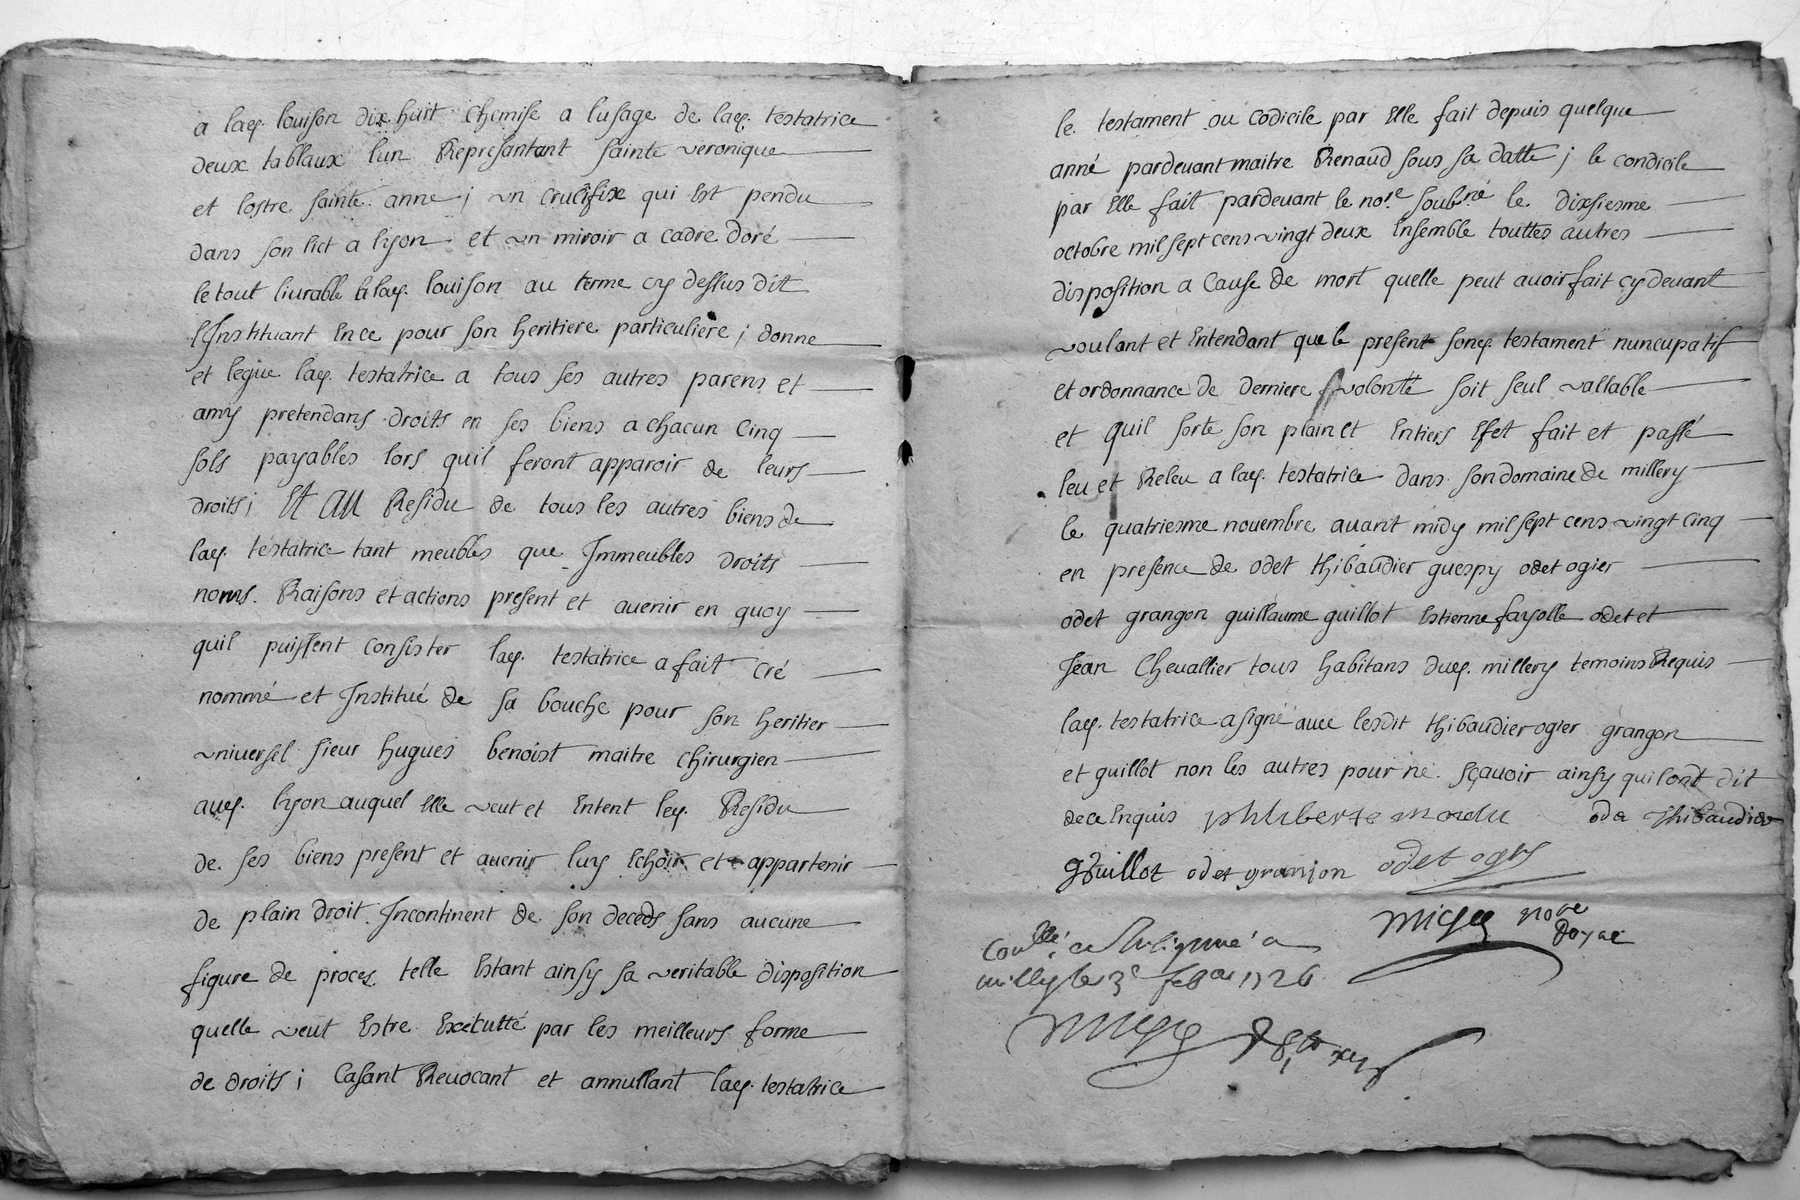 a laq. louison dix huit chemise a lusage de laq. testatrice
deux tablaux lun Represantant sainte veronique
et lostre sainte anne ; un crucifix qui est pendu
dans son lict a lyon et un miroir a cadre doré
le tout liurable a laq. louison au terme cy dessus dit
lInstituant En ce pour son heritiere particuliere ; donne
et legue laq. testatrice a tous ses autres parens et
amys pretendans droits en ses biens a chacun cinq
sols payables lors quil feront apparoir de leurs
droits ; Et AU Residu de tous les autres biens de
laq. testatrice tant meubles que Immeubles droits
noms Raisons et actions present et auenir en quoy
quil puissent consister laq. testatrice a fait cré
nommé et Institué de sa bouche pour son heritier
uniuersel sieur hugues benoist maitre chirurgien
auq. lyon auquel Elle veut et Entent leq. Residu
de ses biens present et auenir luy Echoir et appartenir
de plain droit Incontinent de son deceds sans aucune
figure de proces telle Estant ainsy sa veritable disposition
quelle veut Estre Exécutté par les meilleurs forme
de droits ; Casant Reuocant et annullant laq. testatrice
le testament ou codicile par Elle fait depuis quelque
anné pardeuant maitre Renaud sous sa datte ; le condicile
par Elle fait pardeuant le nore. soubné le dixsiesme
octobre mil sept cens vingt deux Ensemble touttes autres
disposition a Cause de mort quelle peut auoir fait cy deuant
voulant et Entendant que le present sonq. testament nuncupatif
et ordonnance de derniere volonté soit seul vallable
et quil sorte son plain et Entiers Efet fait et passé
leu et Releu a laq. testatrice dans son domaine de millery
le quatriesme nouembre auant midy mil sept cens vingt cinq
en presence de odet thibaudier guespy odet ogier
odet grangon guillaume guillot Estienne fayolle odet et
Jean Cheuallier tous habitans duq. millery temoins Requis
laq. testatrice a signé auec lesdit thibaudier ogier grangon
et guillot non les autres pour ne sçauoir ainsy quil ont dit
de ce Enquis philiberte odet thibaudier
guillot odet granjon odet ogier
nore
Coullé. a
le 3e 1726